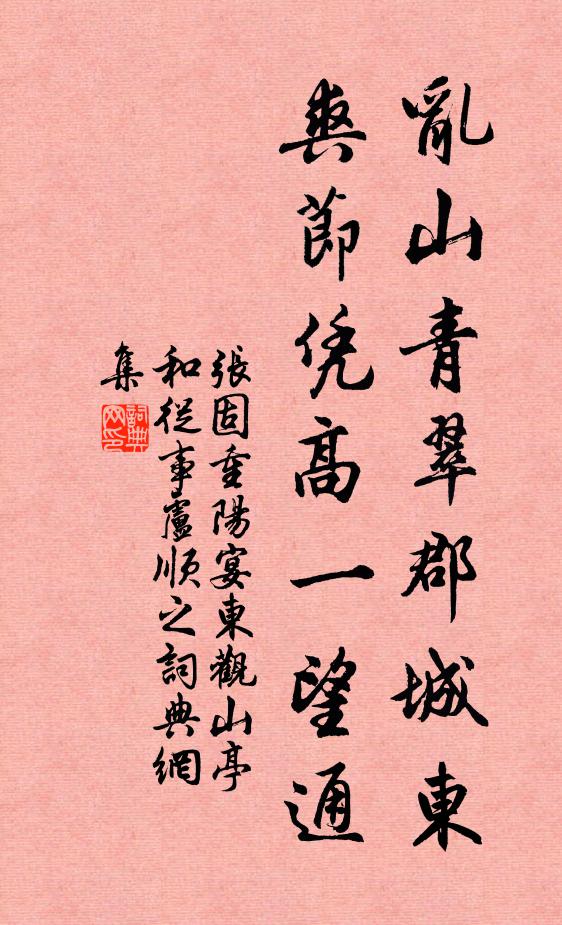 亂山青翠郡城東
爽節凭高一望通
張固重陽宴東觀山亭
和從事盧順之詞典網
集
詞典網印